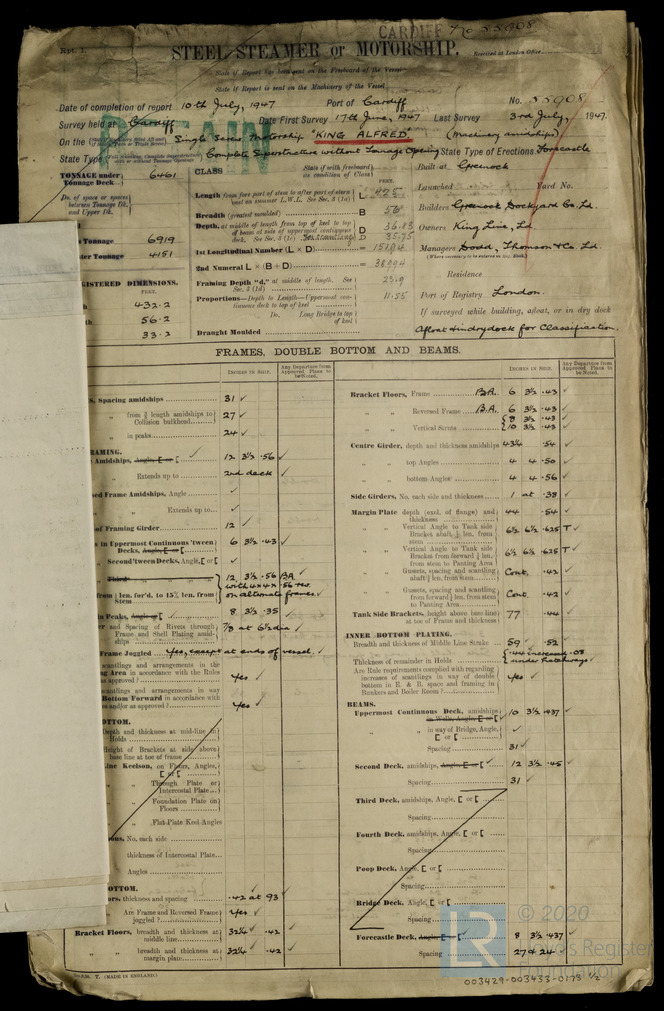 CARDIFF No 55908
Rpt. 1.
STEEL STEAMER or MOTORSHIP.
Received at London Office
State if Report has been sent on the Freeboard of the Vessel
State if Report is sent on the Machinery of the Vessel
Date of completion of report 10th July, 1947 Port of Cardiff No. 55908
Survey held at Cardiff Date First Survey 17th June, 1947 Last Survey 3rd July, 1947.
On the Single Screw Motorship "KING ALFRED" (Machinery amidships)
State Type Complete Superstructure without Tonnage Opening State Type of Erections Forecastle
TONNAGE under Tonnage Deck 6461
Do. of space or spaces between Tonnage Dk. and Upper Dk.
Tonnage 6919
Tonnage 4151
REGISTERED DIMENSIONS.
FEET.
432.2
56.2
33.2
CLASS
State if with freeboard as condition of Class
FEET.
Length from fore part of stem to after part of stern post on summer L.W.L. See Sec. 3 (1a) L 425
Breadth (greatest moulded) B 56
Depth, at middle of length from top of keel to top of beam at side of uppermost continuous deck. See Sec. 3 (1c) D 36.83
D 35.75
1st Longitudinal Number (L × D) = 15194
2nd Numeral L × (B + D) = 38994
Framing Depth "d," at middle of length. See Sec. 3 (1d) 23.9
Proportions—Depth to Length—Uppermost continuous deck to top of keel 11.55
Do. Long Bridge to top of keel
Draught Moulded
Built at Greenock
Launched Yard No.
Builders Greenock Dockyard Co. Ld.
Owners King Line, Ld.
Managers Dodd, Thomson & Co. Ld.
Residence
Port of Registry London.
If surveyed while building, afloat, or in dry dock
Afloat & in drydock for Classification.
FRAMES, DOUBLE BOTTOM AND BEAMS.
INCHES IN SHIP.
Any Departure from Approved Plans to be Noted.
Spacing amidships 31 ✓
from ⅕ length amidships to Collision bulkhead 27 ✓
in peaks 24 ✓
FRAMING.
Amidships, Angle, [ or [ 12 3½ .56 ✓
Extends up to 2nd deck ✓
Frame Amidships, Angle ✓
Extends up to ✓
of Framing Girder 12 ✓
in Uppermost Continuous 'tween Decks, Angle, [ or [ 6 3½ .43 ✓
Second 'tween Decks, Angle, [ or [ ✓
Third
12 3½ .56 BA
with 4 x 4 x .56 rev.
on alternate frames ✓
from ⅕ len. for'd. to 15% len. from Stem
in Peaks, Angle or [ 8 3½ .35 ✓
and Spacing of Rivets through Frame and Shell Plating amidships ⅞ at 6½ dia ✓
Frame Joggled yes, except at ends of vessel ✓
scantlings and arrangements in the Area in accordance with the Rules as approved? yes ✓
scantlings and arrangements in way Bottom Forward in accordance with and/or as approved? yes ✓
BOTTOM.
Depth and thickness at mid-line in Holds
Height of Brackets at side above base line at toe of frame
Keelson, on Floors, Angles, [ or [
Through Plate or Intercostal Plate
Foundation Plate on Floors
Flat Plate Keel Angles
No. each side
thickness of Intercostal Plate
Angles
BOTTOM.
thickness and spacing .42 at 93 ✓
Are Frame and Reversed Frame joggled? yes ✓
Bracket Floors, breadth and thickness at middle line 32¼ .42 ✓
breadth and thickness at margin plate 32¼ .42 ✓
INCHES IN SHIP.
Any Departure from Approved Plans to be Noted.
Bracket Floors, Frame B.A. 6 3½ .43 ✓
" " Reversed Frame B.A. 6 3½ .43 ✓
" " Vertical Struts 8 3½ .43 ✓
10 3½ .43 ✓
Centre Girder, depth and thickness amidships 43¼ .54 ✓
" " top Angles 4 4 .50 ✓
" " bottom Angles 4 4 .56 ✓
Side Girders, No. each side and thickness 1 at .38 ✓
Margin Plate depth (excl. of flange) and thickness 44 .54 ✓
" " Vertical Angle to Tank side Bracket abaft ¼ len. from stem 6½ 6½ .625 T ✓
" " Vertical Angle to Tank side Bracket from forward ¼ len. from stem to Panting Area 6½ 6½ .625 T ✓
" " Gussets, spacing and scantling abaft ¼ len. from stem Cont. .42 ✓
" " Gussets, spacing and scantling from forward ¼ len. from stem to Panting Area Cont. .42 ✓
Tank Side Brackets, height above base line at toe of Frame and thickness 77 .44 ✓
INNER BOTTOM PLATING.
Breadth and thickness of Middle Line Strake 59 .52 ✓
Thickness of remainder in Holds .44 increased .08 under hatchways ✓
Are Rule requirements complied with regarding increases of scantlings in way of double bottom in E. & B. space and framing in Bunkers and Boiler Room? yes ✓
BEAMS.
Uppermost Continuous Deck, amidships in Wells, Angle, [ or [ 10 3½ .437 ✓
" " in way of Bridge, Angle, [ or [ ✓
Spacing 31 ✓
Second Deck, amidships, Angle, [ or [ 12 3½ .45 ✓
Spacing 31 ✓
Third Deck, amidships, Angle, [ or [
Spacing
Fourth Deck, amidships, Angle, [ or [
Spacing
Poop Deck, Angle, [ or [
Spacing
Bridge Deck, Angle, [ or [
Spacing
Forecastle Deck, Angle, [ or [ 8 3½ .437 ✓
Spacing 27 & 24 ✓
T. (MADE IN ENGLAND.)
© 2020
Lloyd's Register
Foundation
003429-003433-0173 ½